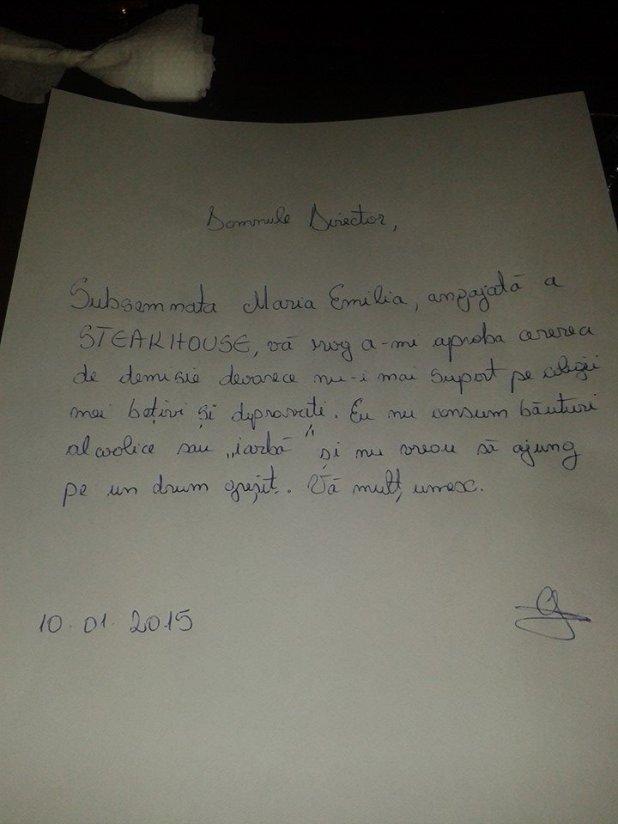 Domnule Director,
Subsemnata Maria Emilia, angajată a
STEAKHOUSE, vă rog a-mi aproba cererea
de demisie deoarece nu-i mai suport pe colegii
mei bețivi și depravați. Eu nu consum băuturi
alcoolice sau „iarbă” și nu vreau să ajung
pe un drum greșit. Vă mulțumesc.
10.01.2015